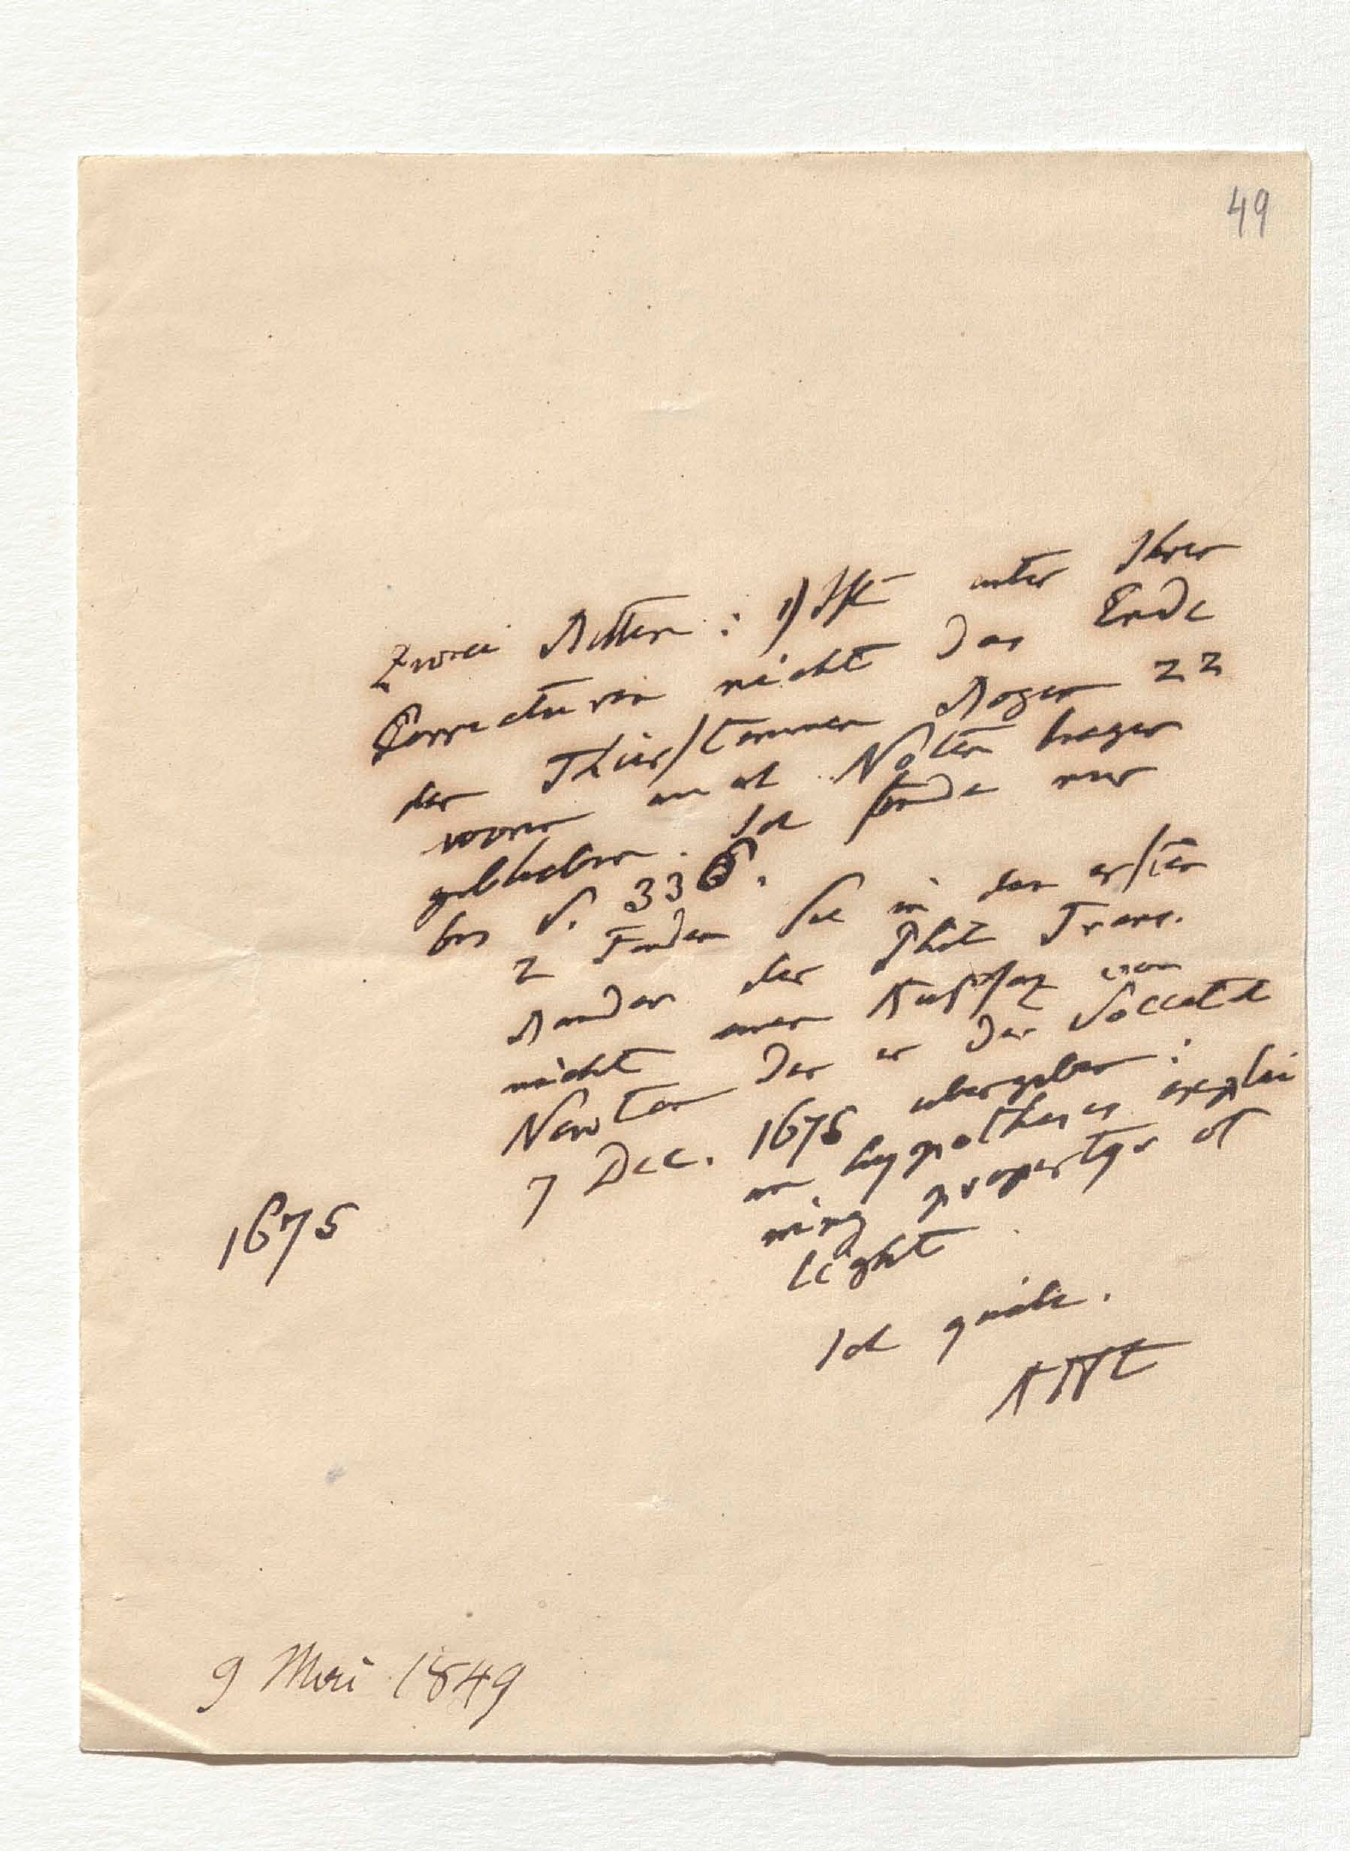 49
Zwei Bitten : 1) Ist unter Ihren
Correcturen nicht das Ende
der Thierstimmen Bogen 22
worin auch Noten liegen
geblieben. Ich finde nur
bis S. 336.
2 Finden Sie in den ersten
Bänden der Phil Trans.
nicht einen Aufsaz von
Newton der er der Societät
7 Dec. 1675 übergeben :
an hypothesis explai
ning propertys of
light
1675
Ich quäle.
AHt
9 Mai 1849